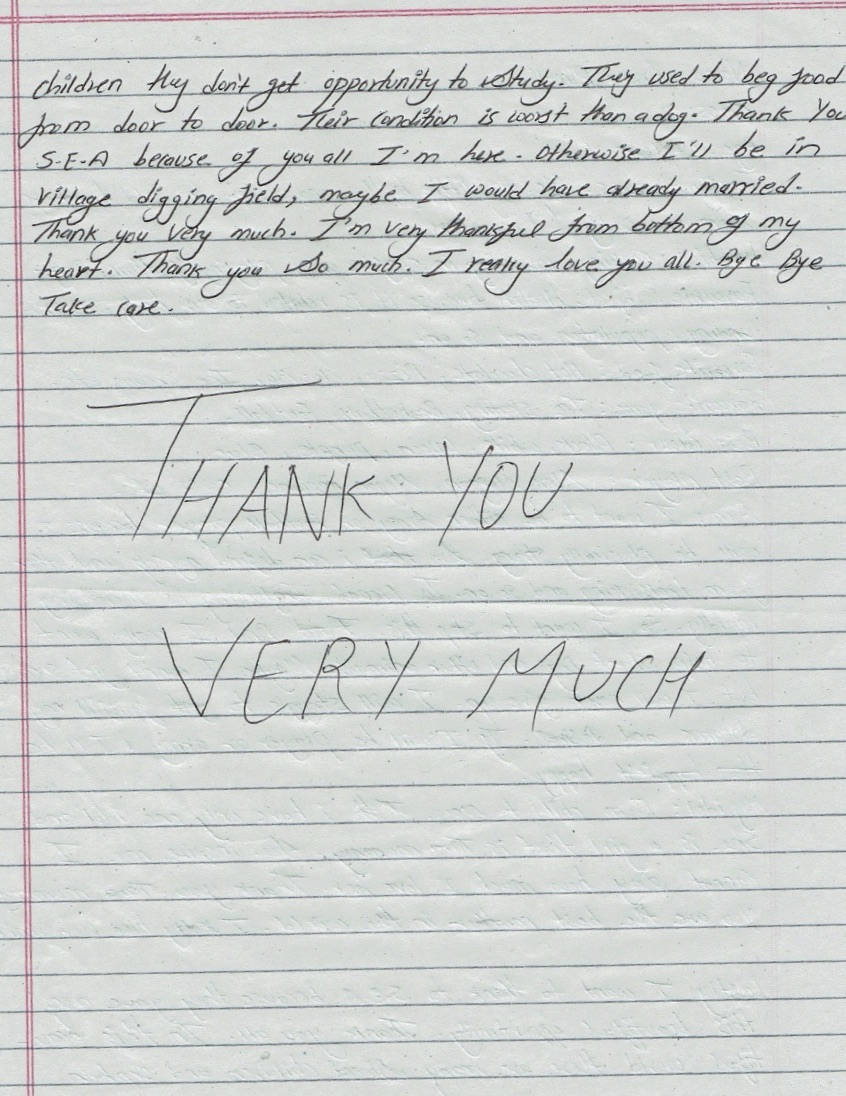 children they don't get opportunity to study. They used to beg food
from door to door. Their condition is worst than a dog. Thank You
S.E.A because of you all I'm here. Otherwise I'll be in
village digging field, maybe I would have already married.
Thank you very much. I'm very thankful from bottom of my
heart. Thank you so much. I really love you all. Bye Bye
Take care.
THANK YOU
VERY MUCH